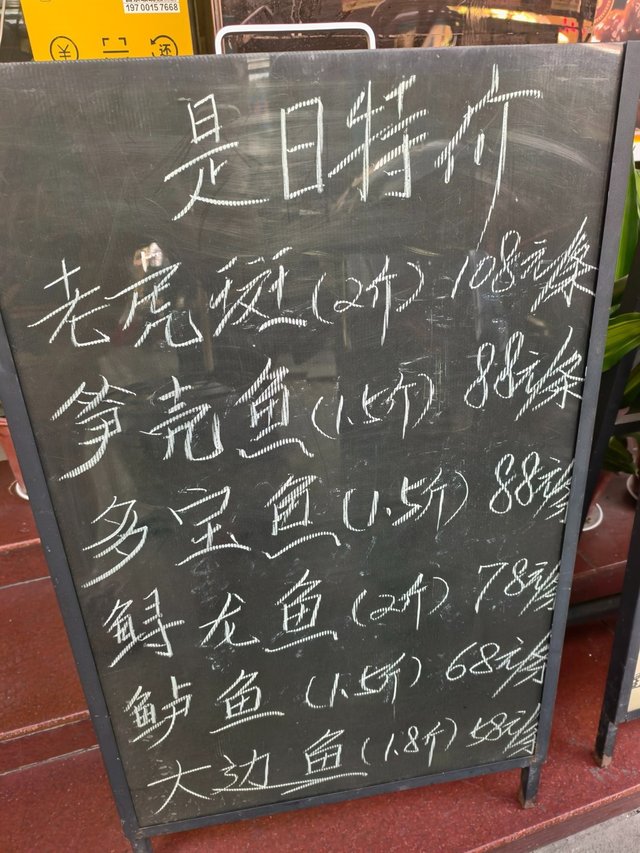 19700157668
还
是日特价
老虎斑(2斤) 108元/条
笋壳鱼(1.5斤) 88元/条
多宝鱼(1.5斤) 88元/条
鲟龙鱼(2斤) 78元/条
鲈鱼(1.5斤) 68元/条
大边鱼(1.8斤) 58元/条